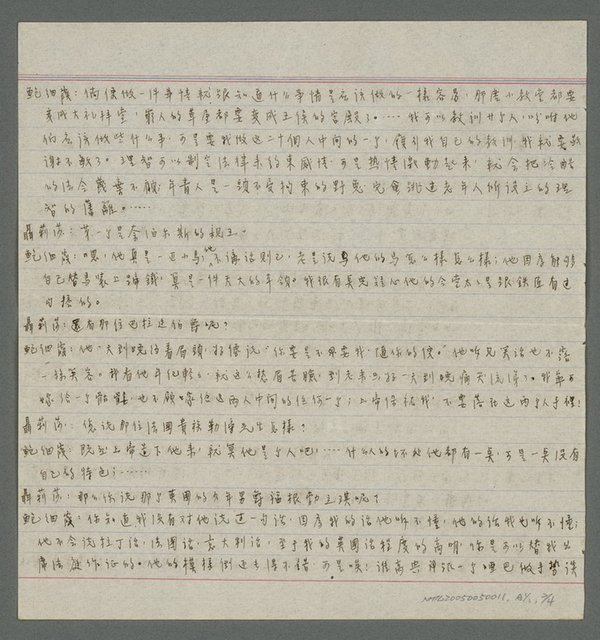 鮑細霞：倘使做一件事情就跟知道什么事情是应该做的一樣容易，那庅小教堂都要
变成大礼拜堂，窮人的草屋都要变成王侯的宮殿了。…… 我可以教訓廿个人，吩咐他
们应该做些什么事，可是要我做这二十個人中间的一个，履行我自己的教訓，我就要敬
謝不敏了。理智可以制定法律来約束感情，可是热情激動起来，就会把冷酷
的法令蔑棄不顾；年青人是一頭不受拘束的野兎，会跳过老年人所设立的理
智的藩籬。……
聶莉莎：第一个是奈伯尔斯的親王。
鮑細霞：嗯，他真是一匹小馬；他不講话则已，老是说他的馬怎么樣怎么樣；他因為能夠
自己替馬装上蹄鐵，算是一件天大的本领。我很有點兒疑心他的令堂太太是跟鉄匠有过
勾搭的。
聶莉莎：還有那位巴拉廷伯爵呢？
鮑細霞：他一天到晚皱着眉頭，好像说“你要是不爱我，随你的便。”他听见笑话也不露
一絲笑容。我看他年纪輕々，就这么愁眉苦臉，到老来只好一天到晚痛哭流涕了。我寧可
嫁给一个骷髏，也不願嫁给这两人中间的任何一个；上帝保祐我，不要落在这两个人手裡！
聶莉莎：您说那位法國貴族勒滂先生怎樣？
鮑細霞：既然上帝造下他来，就算他是个人吧，…… 什么人的坏处他都有一點，可是一點没有
自己的特色；……
聶莉莎：那么你说那个英國的少年男爵福根勃立琪呢？
鮑細霞：你知道我没有对他说过一句话，因為我的话他听不懂，他的话我也听不懂；
他不会说拉丁话，法國话，意大利话；至于我的英國话程度的高明，你是可以替我出
席法庭作证的。他的模樣倒还长得不错，可是唉！誰高兴跟一个啞巴做手势谈
NMTL20050050011, BY1, 3/4